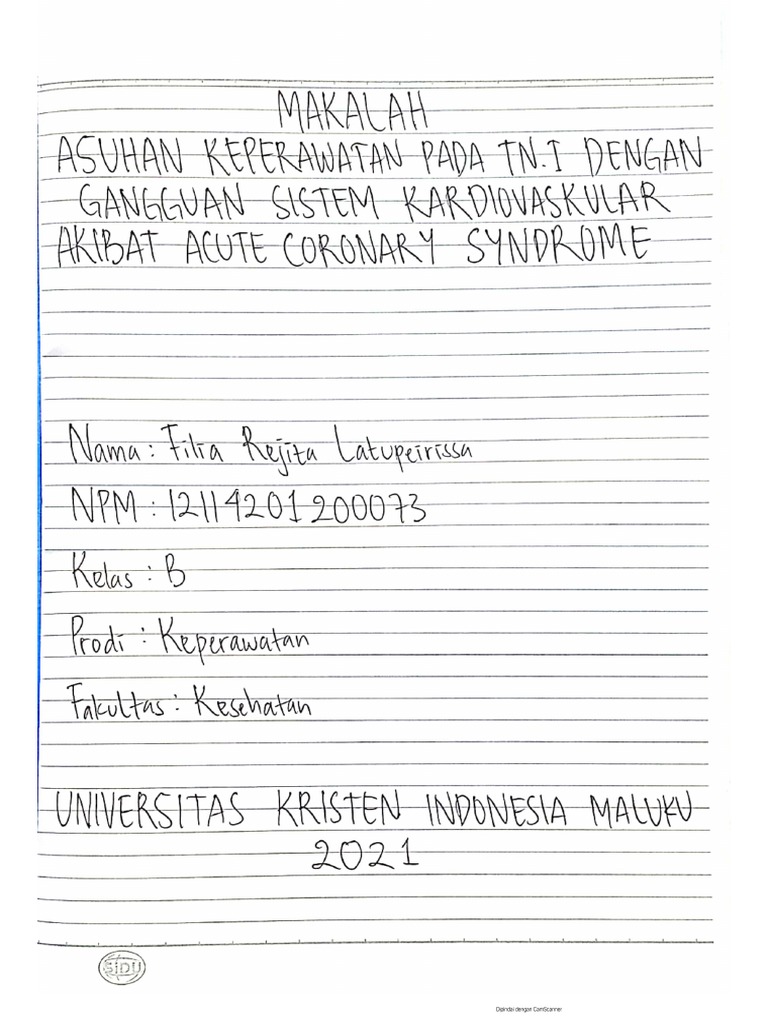 MAKALAH
ASUHAN KEPERAWATAN PADA TN.I DENGAN
GANGGUAN SISTEM KARDIOVASKULAR
AKIBAT ACUTE CORONARY SYNDROME
Nama : Filia Rejita Latupeirissa
NPM : 12114201200073
Kelas : B
Prodi : Keperawatan
Fakultas : Kesehatan
UNIVERSITAS KRISTEN INDONESIA MALUKU
2021
SIDU
Dipindai dengan CamScanner